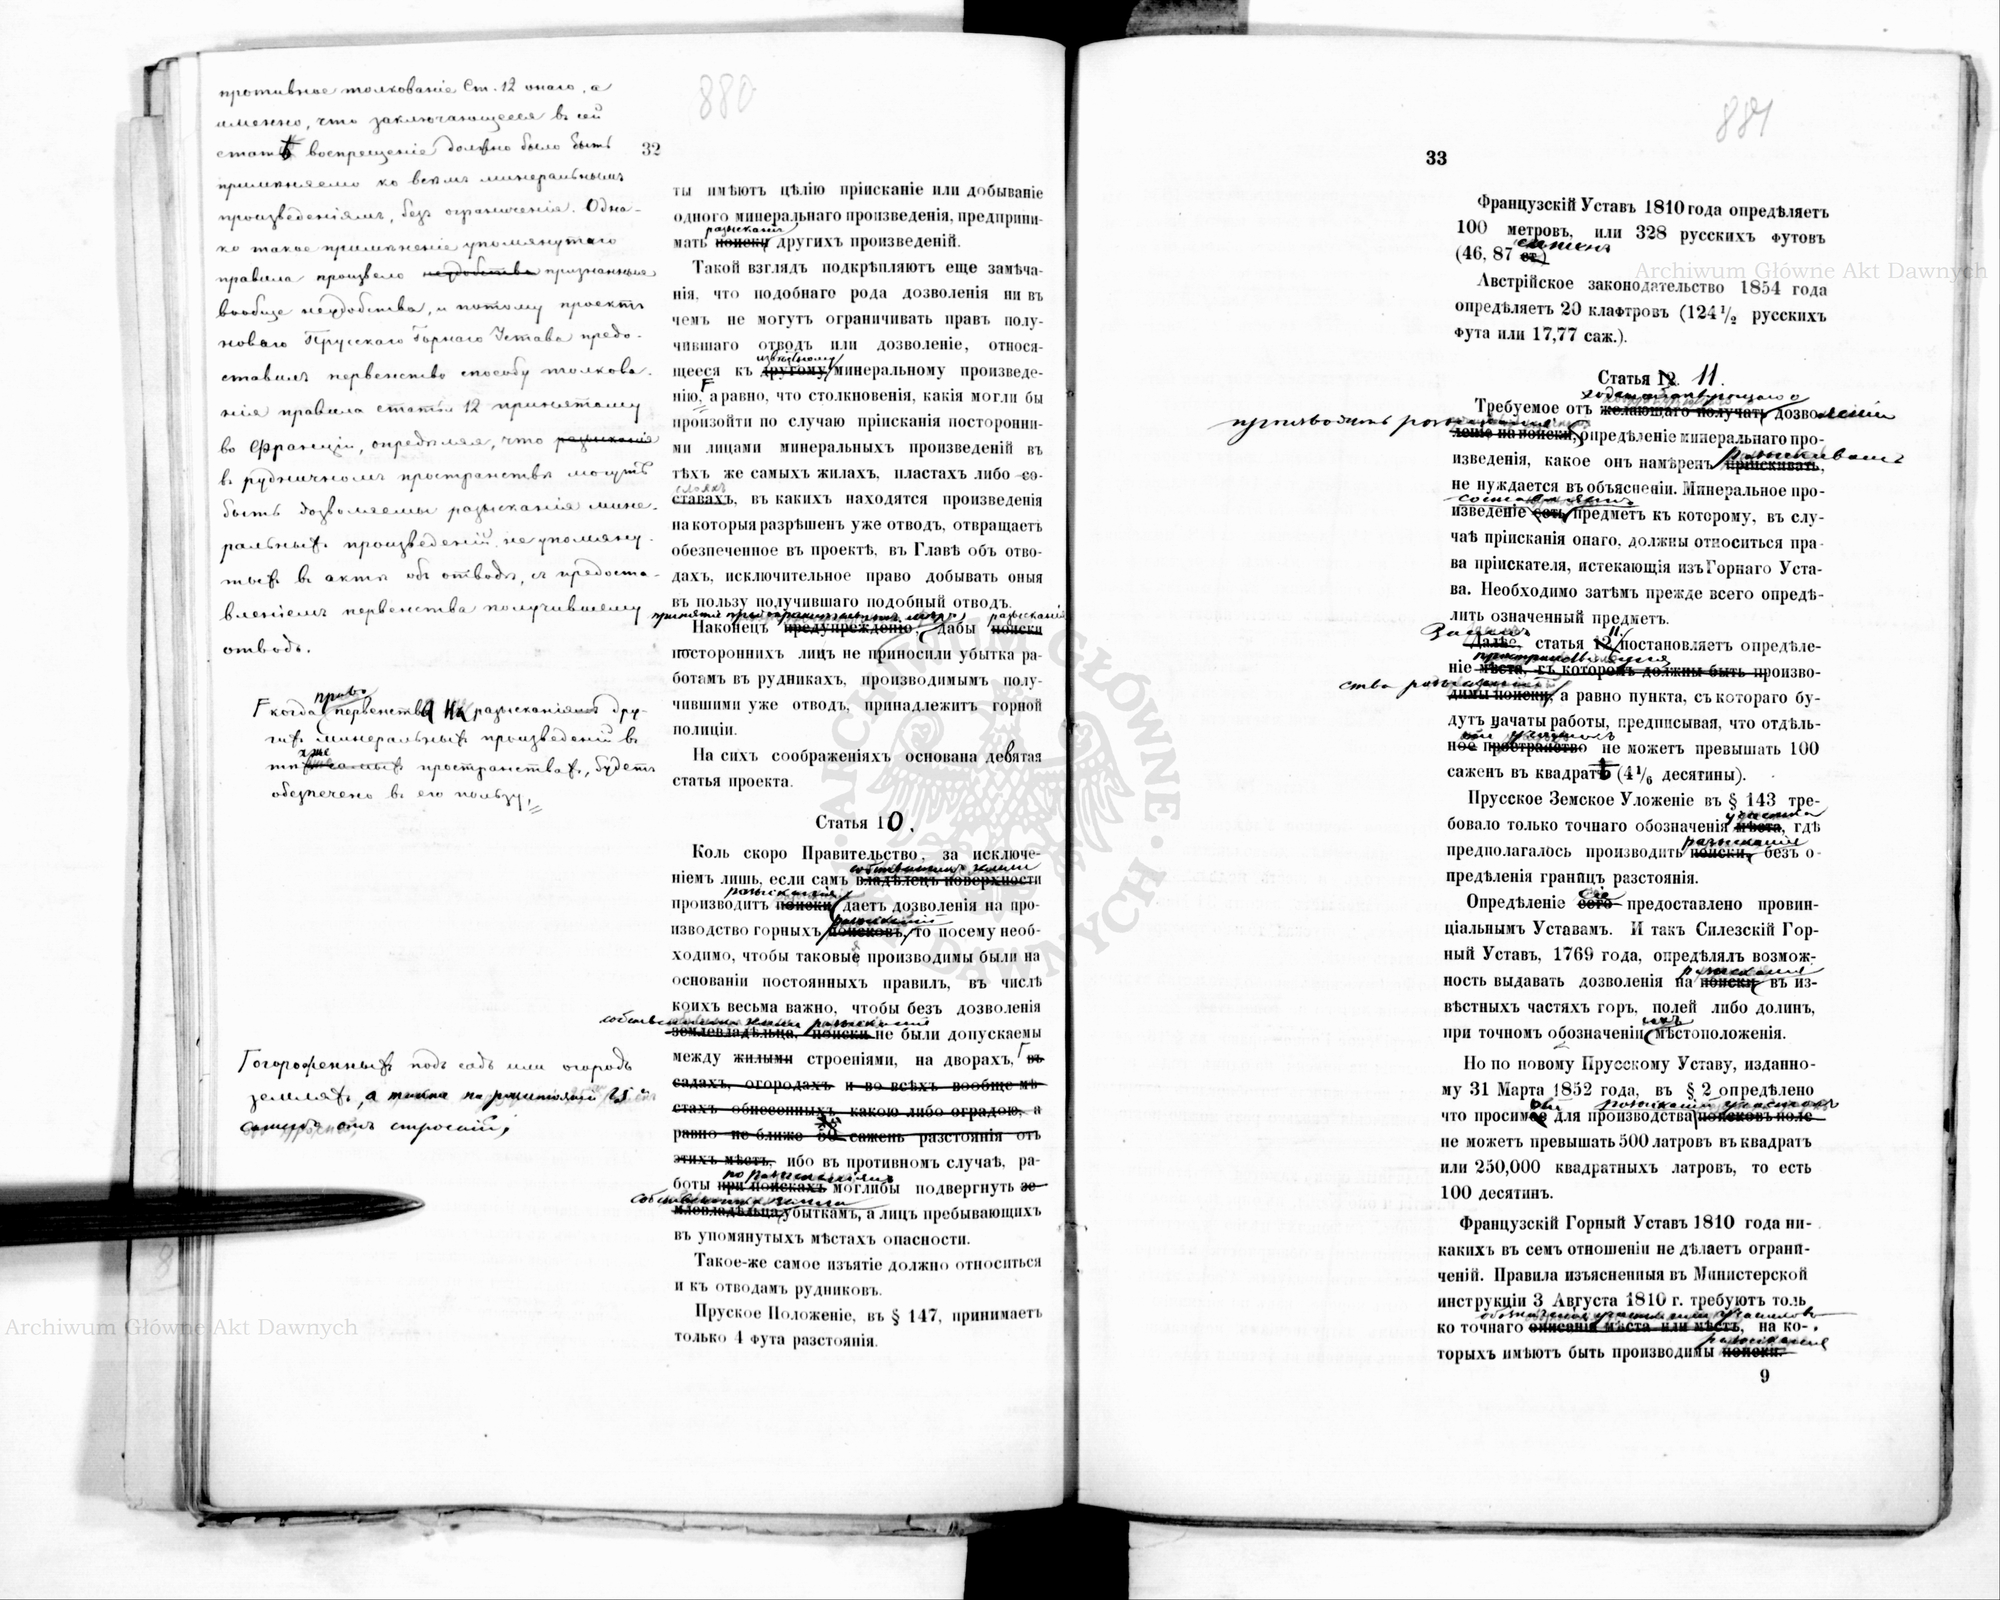 880
32
противное толкованіе Ст. 12 онаго, а
именно, что заключающееся въ сей
статьѣ воспрещеніе должно было быть
примѣняемо ко всѣмъ минеральнымъ
произведеніямъ, безъ ограниченія. Одна-
ко такое примѣненіе упомянутаго
правила произвело неудобства признанныя
вообще неудобства, и потому проектъ
новаго Прусскаго Горнаго Устава предо-
ставилъ первенство способу толкова-
нія правила статьи 12 принятому
во Франціи, опредѣляя, что разысканія
въ рудничномъ пространствѣ могутъ
быть дозволяемы разысканія мине-
ральныхъ произведеній, не упомяну-
тыхъ въ актѣ объ отводѣ, съ предоста-
вленіемъ первенства получившему
отводъ.
когда право первенства на разысканіе дру-
гихъ минеральныхъ произведеній въ
тѣхъ же пространствахъ, будетъ
обезпечено въ его пользу,
огороженныхъ подъ садъ или огородъ
земляхъ, а также на разстояніи 25
сажень отъ строеній;
ты имѣютъ цѣлію пріисканіе или добываніе
одного минеральнаго произведенія, предприни-
разысканія
мать поиски другихъ произведеній.
Такой взглядъ подкрѣпляютъ еще замѣча-
нія, что подобнаго рода дозволенія ни въ
чемъ не могутъ ограничивать правъ полу-
чившаго отводъ или дозволеніе, относя-
извѣстному
щееся къ другому минеральному произведе-
нію, а равно, что столкновенія, какія могли бы
произойти по случаю пріисканія посторонни-
ми лицами минеральныхъ произведеній въ
тѣхъ же самыхъ жилахъ, пластахъ либо со-
слояхъ
ставахъ, въ какихъ находятся произведенія
на которыя разрѣшенъ уже отводъ, отвращаетъ
обезпеченное въ проектѣ, въ Главѣ объ отво-
дахъ, исключительное право добывать оныя
въ пользу получившаго подобный отводъ.
принятіе предохранительныхъ мѣръ разысканія
Наконецъ предупрежденіе, дабы поиски
постороннихъ лицъ не приносили убытка ра-
ботамъ въ рудникахъ, производимымъ полу-
чившими уже отводъ, принадлежитъ горной
полиціи.
На сихъ соображеніяхъ основана девятая
статья проекта.
Статья 10.
Коль скоро Правительство, за исключе-
собственникъ земли
ніемъ лишь, если самъ владѣлецъ поверхности
разысканія
производитъ поиски, даетъ дозволенія на про-
разысканій
изводство горныхъ поисковъ, то посему необ-
ходимо, чтобы таковыя производимы были на
основаніи постоянныхъ правилъ, въ числѣ
коихъ весьма важно, чтобы безъ дозволенія
собственника земли разысканія
землевладѣльца, поиски не были допускаемы
между жилыми строеніями, на дворахъ, въ
садахъ, огородахъ и во всѣхъ вообще мѣ-
стахъ обнесенныхъ какою либо оградою, а
равно не ближе 50 сажень разстоянія отъ
этихъ мѣстъ, ибо въ противномъ случаѣ, ра-
по разысканіямъ
боты при поискахъ моглибы подвергнуть зе-
собственника земли
млевладѣльца убыткамъ, а лицъ пребывающихъ
въ упомянутыхъ мѣстахъ опасности.
Такое-же самое изъятіе должно относиться
и къ отводамъ рудниковъ.
Пруское Положеніе, въ § 147, принимаетъ
только 4 фута разстоянія.
881
33
Французскій Уставъ 1810 года опредѣляетъ
100 метровъ, или 328 русскихъ футовъ
сажень
(46, 87 ст.)
Австрійское законодательство 1854 года
опредѣляетъ 20 клафтровъ (124 1/2 русскихъ
фута или 17,77 саж.).
Статья 12. 11.
ходатайствующаго о
Требуемое отъ желающаго получать дозволеніи
производить
леніе на поиски, опредѣленіе минеральнаго про-
разыскивать
изведенія, какое онъ намѣренъ пріискивать,
не нуждается въ объясненіи. Минеральное про-
составляетъ
изведеніе есть предметъ къ которому, въ слу-
чаѣ пріисканія онаго, должны относиться пра-
ва пріискателя, истекающія изъ Горнаго Уста-
ва. Необходимо затѣмъ прежде всего опредѣ-
лить означенный предметъ.
Затѣмъ 11
Далѣе, статья 12 постановляетъ опредѣле-
пространства для
ніе мѣста, въ которомъ должны быть произво-
ства разысканій
димы поиски, а равно пункта, съ котораго бу-
дутъ начаты работы, предписывая, что отдѣль-
участокъ
ное пространство не можетъ превышать 100
сажень въ квадратѣ (4 1/6 десятины).
Прусское Земское Уложеніе въ § 143 тре-
участка
бовало только точнаго обозначенія мѣста, гдѣ
разысканія
предполагалось производить поиски, безъ о-
предѣленія границъ разстоянія.
сіе
Опредѣленіе сего предоставлено провин-
ціальнымъ Уставамъ. И такъ Силезскій Гор-
ный Уставъ, 1769 года, опредѣлялъ возмож-
разысканія
ность выдавать дозволенія на поиски въ из-
вѣстныхъ частяхъ горъ, полей либо долинъ,
ихъ
при точномъ обозначеніи мѣстоположенія.
Но по новому Прусскому Уставу, изданно-
му 31 Марта 1852 года, въ § 2 опредѣлено
разысканій участокъ
что просимое для производства поисковъ поле
не можетъ превышать 500 латровъ въ квадратъ
или 250,000 квадратныхъ латровъ, то есть
100 десятинъ.
Французскій Горный Уставъ 1810 года ни-
какихъ въ семъ отношеніи не дѣлаетъ ограни-
ченій. Правила изъясненныя въ Министерской
инструкціи 3 Августа 1810 г. требуютъ толь
обозначенія участка или участковъ
ко точнаго описанія мѣста или мѣстъ, на ко-
разысканія
торыхъ имѣютъ быть производимы поиски.
9
Archiwum Główne Akt Dawnych
Archiwum Główne Akt Dawnych
ARCHIWUM GŁÓWNE AKT DAWNYCH